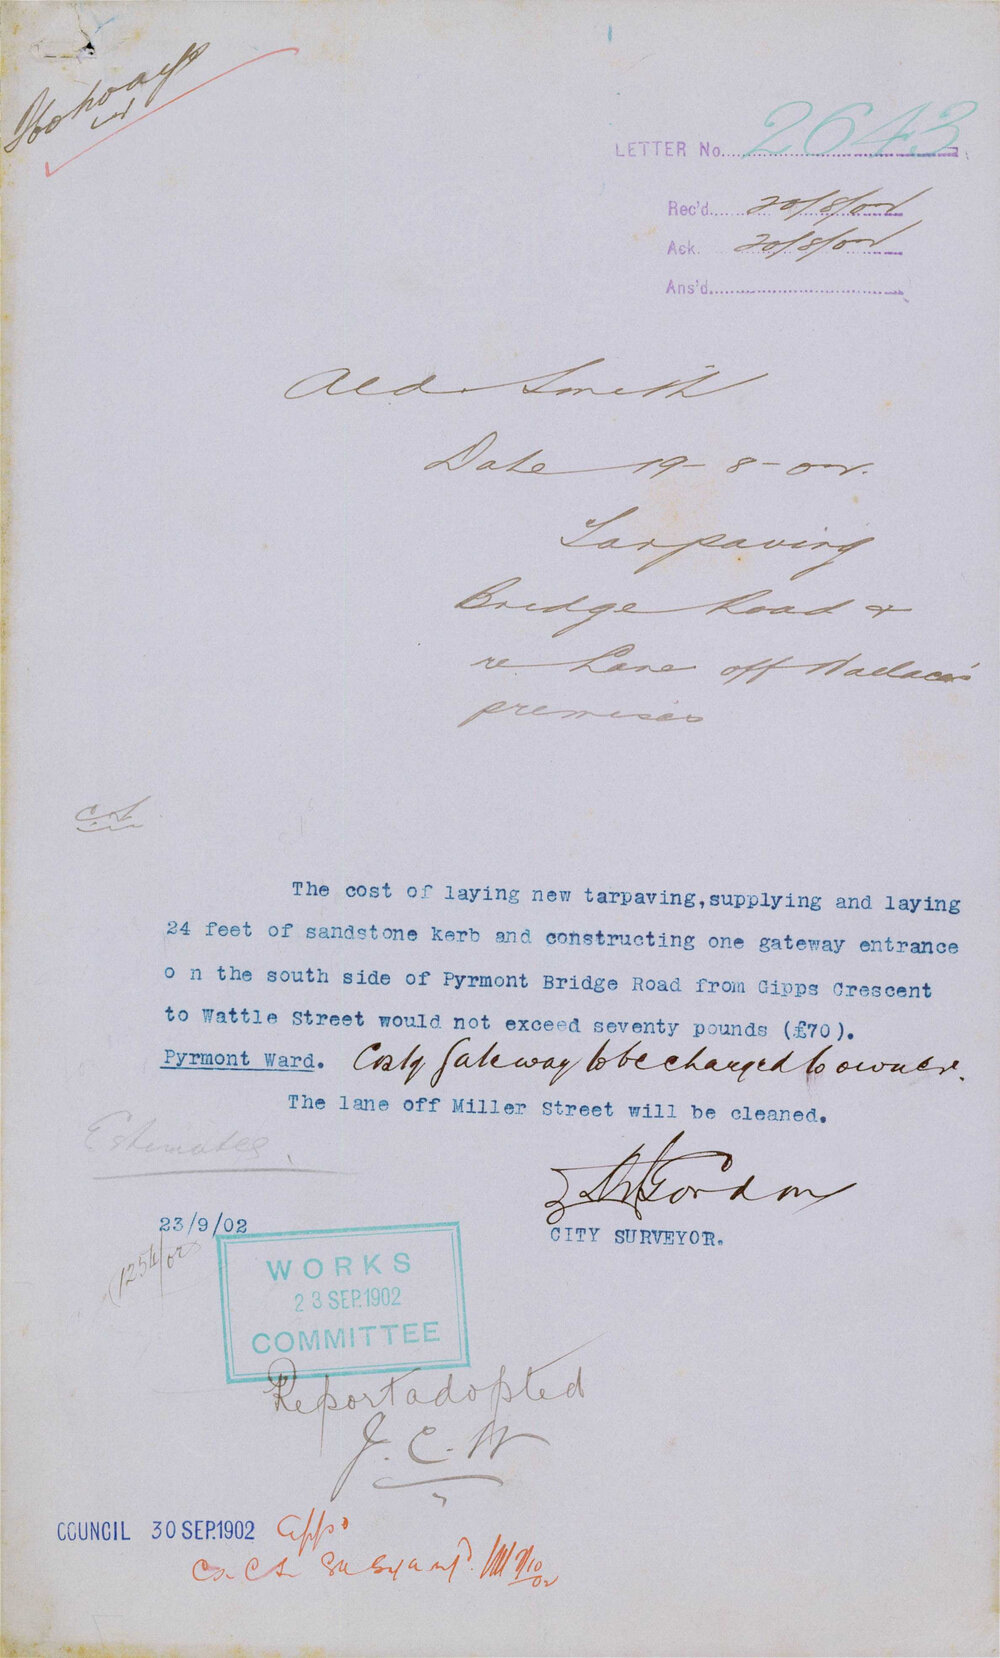 LETTER No. 2643
Rec'd. 20/8/02
Ack. 20/8/02
Ans'd.
Ald. Smith
Date 19-8-02.
Tarpaving
Bridge Road &
re Lane off Wallace's
premises
C.S.
The cost of laying new tarpaving,supplying and laying
24 feet of sandstone kerb and constructing one gateway entrance
o n the south side of Pyrmont Bridge Road from Gipps Crescent
to Wattle Street would not exceed seventy pounds (£70).
Pyrmont Ward. Cost of Gateway to be charged to owner.
The lane off Miller Street will be cleaned.
Estimates.
Gordon
23/9/02
CITY SURVEYOR.
1254/02
WORKS
23 SEP.1902
COMMITTEE
Report adopted
J. C. W
COUNCIL 30 SEP.1902 Appd